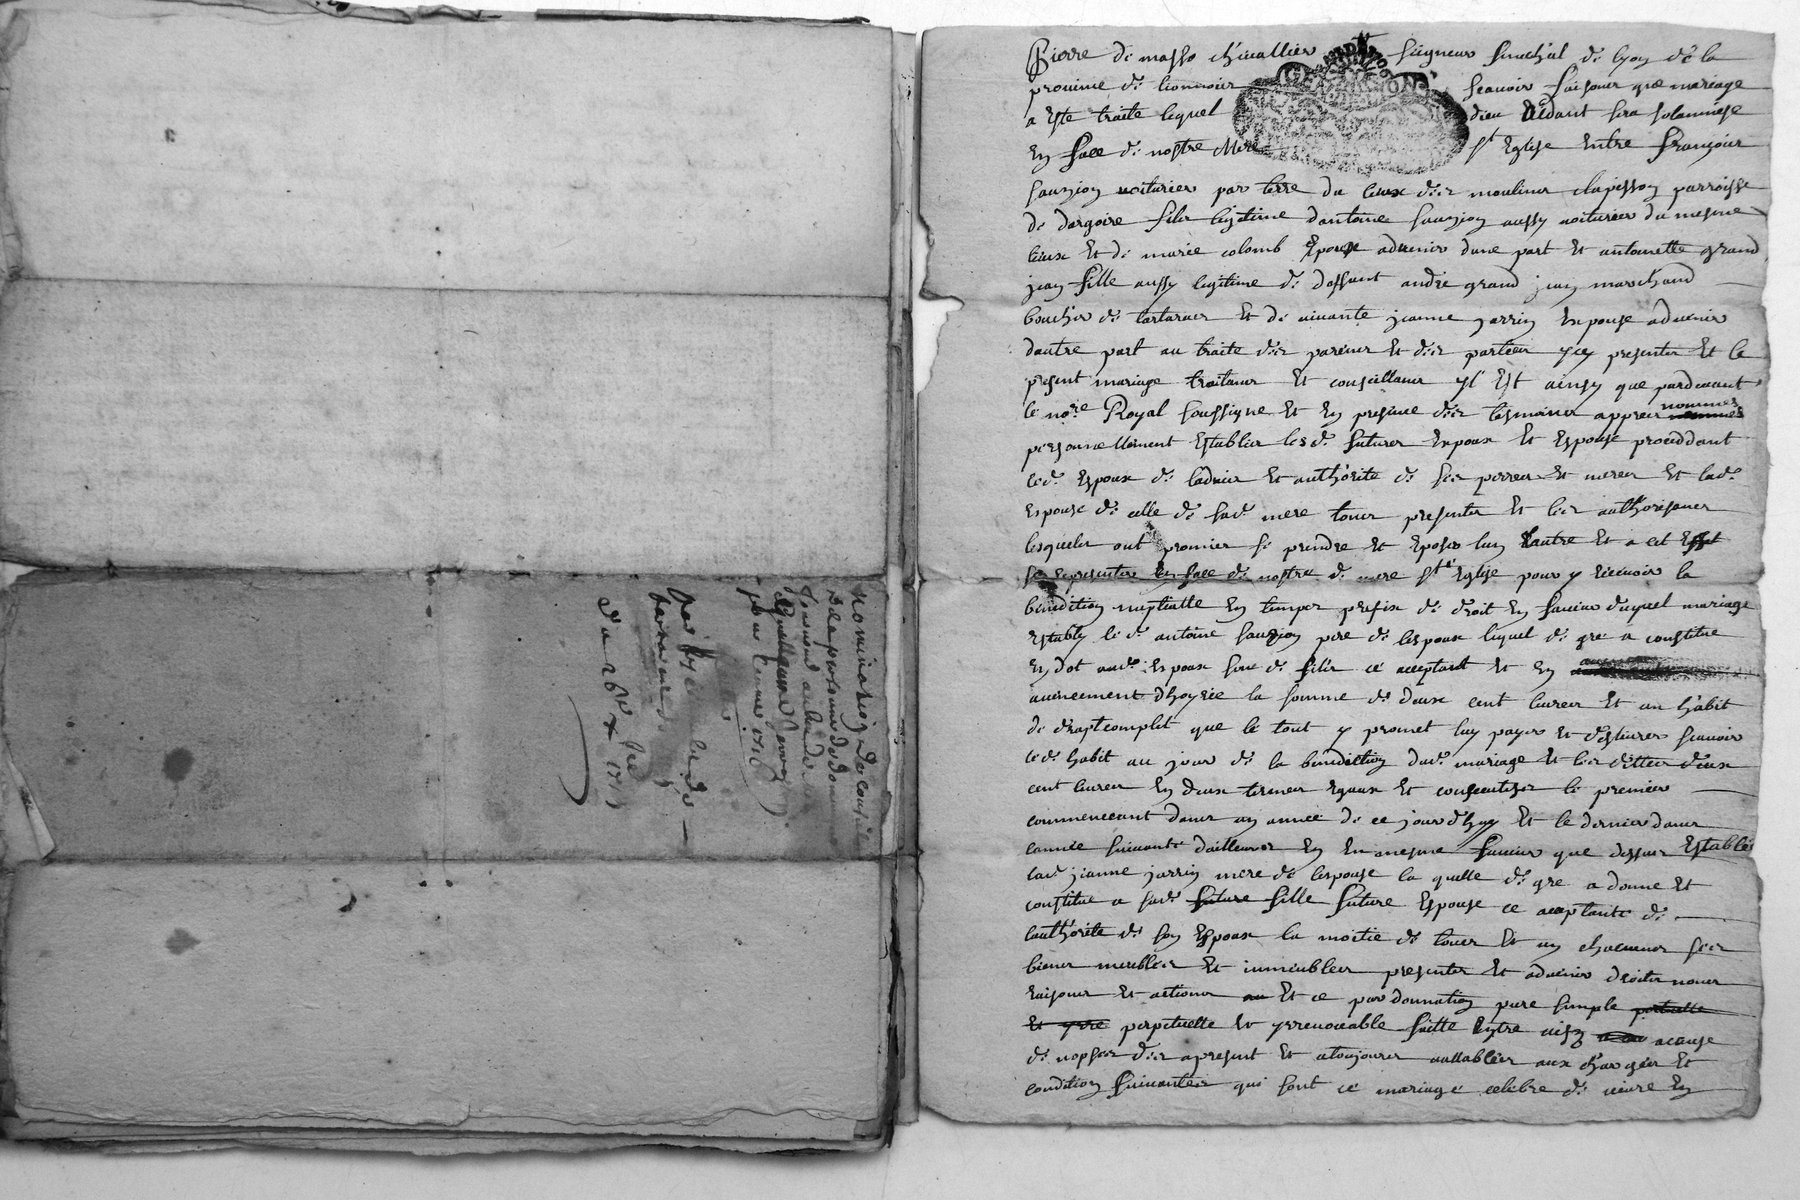 nomination de consul
de la personne de
pour lannee 1716
Pierre de masso chevallier seigneur senechal de lyon de la
province de lionnois scavoir faisons que mariage
a este traite lequel dieu aidant sera solannise
En face de nostre Mere ste Eglise Entre François
sauzion voiturier par terre du lieux des moulins clapisson parroisse
de dargoire fils legitime dantoine sauzion aussy voiturier du mesme
lieux Et de marie colomb Epoux advenir dune part Et antoinette grand
jean fille aussy legitime de deffunt andre grand jean marchand
boucher de tartaras Et de vivante jeanne jarrin Expouse advenir
dautre part au traite des pareins Et des parties ycy presenter Et le
present mariage traitans Et conseillans yl Est ainsy que pardevant
le nore Royal soussigne Et En presence des tesmoins appres nommes
personnellement Establis lesd. futurs Expoux Et Espouse proceddant
led. Espoux de ladvis Et authorite de ses perres Et meres Et lad.
Espouse de celle de sad. mere tous presents Et les authorisans
lesquels ont promis se prendre Et Eposer lun Lautre Et a cet Effet
se representer En face de nostre d. mere ste Eglise pour y recevoir la
benediction nuptialle En temps prefix de droit En faveur duquel mariage
Estably le d. antoine sauzion pere de lespoux lequel de gre a constitue
En dot aud. Expoux son d. fils ce acceptant Et En
avencement dhoyrie la somme de deux cent livres Et un habit
de drapt complet que le tout y promet luy payer Et deslivrer scavoir
led. habit au jour de la benediction dud. mariage Et les dittes deux
cent livres En deux termes Egaux Et consecutifs le premier
commencant dans un annee de ce jourdhuy Et le dernier dans
lannee suivante dailleurs En En mesme faveur que dessus Establie
lad. jeanne jarrin mere de lespouse la quelle de gre a donne Et
constitue a sad. future fille future Espouse ce acceptante de
lauthorite de son Espoux la moitie de tous Et un chacuns ses
biens meubles Et immeubles presents Et advenir droits noms
raisons Et actions Et ce par donnation pure simple
Et yrre perpetuelle Et yrrevocable faitte Entre vifs acause
de nopses des apresent Et atoujours vallables aux charges Et
condition suivantes qui sont ce mariage celebre de vivre En